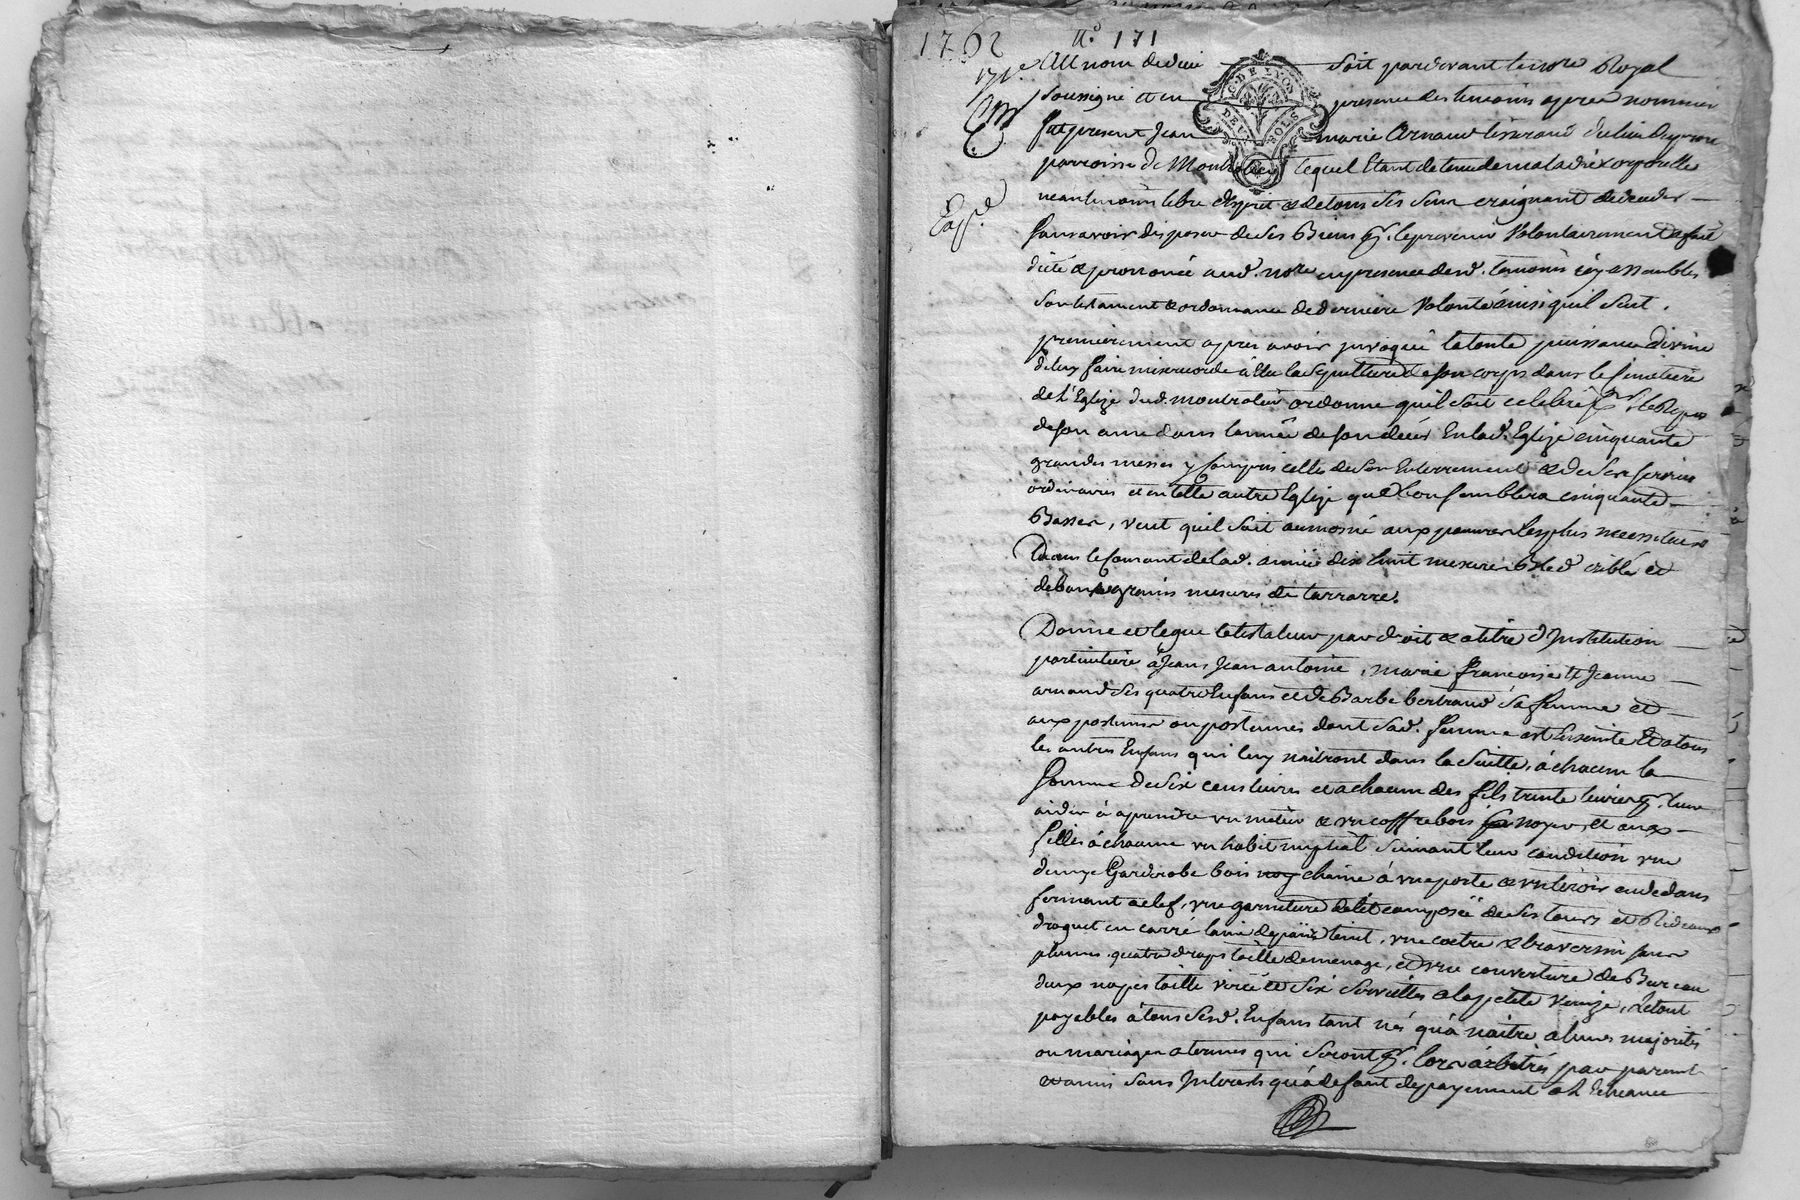 1762 N.º 171
171e Au nom de dieu soit pardevant le no.re Royal
soussigné et en presence des temoins apres nommés
G. DE LYON
DEUX SOLS
fut present Jean marie Arnaud tisserand du lieu
parroisse de Montrotier lequel Etant detenu de maladie corporelle
neantmoins libre d'esprit & de tous ses sens craignant de deceder
Exp.é
sans avoir disposer de ses Biens p.r le prevenir Volontairement a fait
dicté & prononcé aud. no.re en presence desd. temoins icy assemblés
son testament & ordonnance de derniere Volonté ainsi quil suit.
premierement apres avoir invoqué la toute puissance divine
de luy faire misericorde à Elu la sepulture de son corps dans le Cimetiere
de l'Eglize dud. montrotier ordonne quil soit celebré p.r le Repos
de son ame dans l'année de son décés En lad. Eglize cinquante
grandes messes y compris celles de son Enterrement & de ses services
ordinaires et en telle autre Eglize que bon semblera cinquante
Basses, veut quil soit aumosné aux pauvres les plus necessiteux
Dans le Courant de lad. année dix huit mesures Bled seible et
de bons grains mesures de tarrarre.
Donne et legue le testateur par droit & a titre d'Institution
particuliere à Jean, Jean antoine, marie françoise et Jeanne
arnaud ses quatre Enfans et de Barbe bertrand sa femme et
aux postume ou postumes dont sad. femme est Enceinte Et a tous
les autres Enfans qui luy naitront dans la suitte, à chacun la
somme de six cens livres et a chacun des fils trente livres p.r leur
aider à aprendre un métier & un coffre bois noyer, et aux
filles à chacune un habit nuptial suivant leur condition une
demye Garderobe bois noy chaine à une porte & un tiroir au dedans
fermant a clef, une garniture de lit composée de ses tours et Rideaux
droguet en carré laine de païs teint, une coetre & traversin sans
plumes, quatre draps toille de menage, et une couverture de Bureau
deux napes toille et six serviettes a la petite Venize, le tout
payables à tous sesd. Enfans tant nés qu'à naitre a leurs majorités
ou mariages a termes qui seront p.r lors arbitrés par parents
et amis sans Interests qu'à defaut de payement a l'Echeance